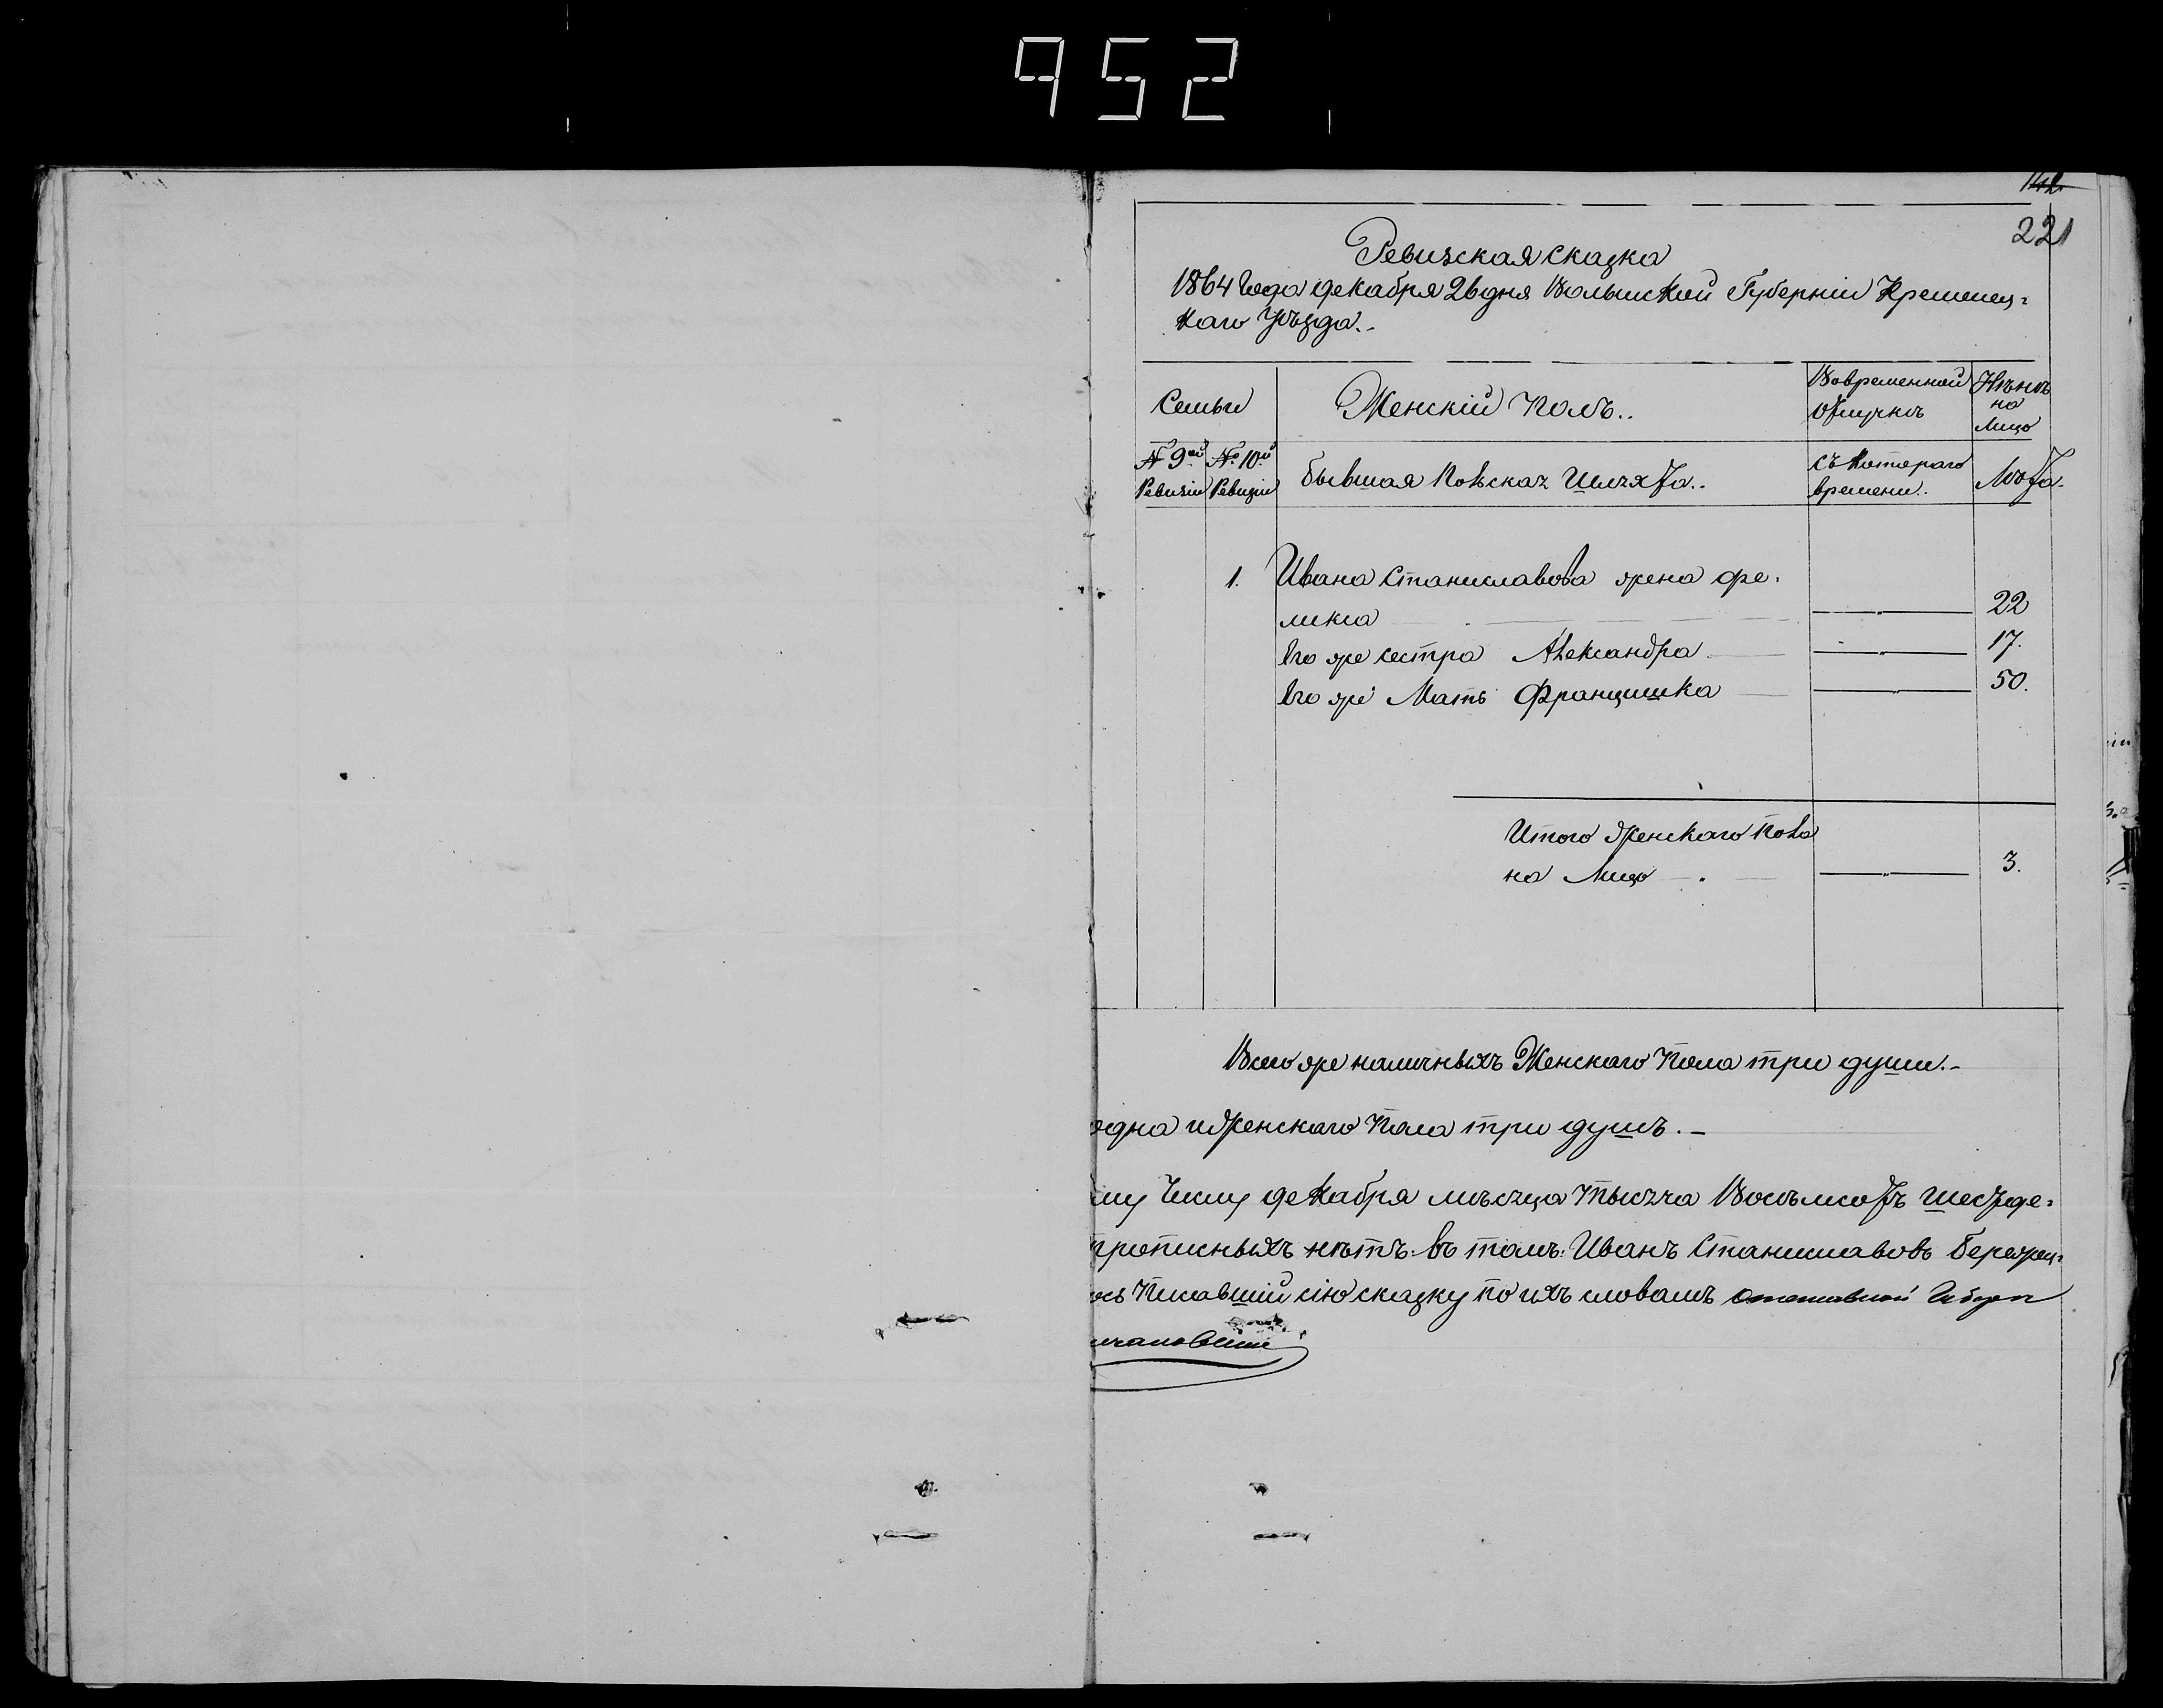 952
142
221
Ревизская сказка
1864 Года декабря 26 дня Волынской Губерніи Кременец=
каго Уѣзда.
Семьи
Женскій полъ..
Вовременной
отлучкѣ
Нынѣ
на
лицо
№ 9ой
Ревизіи
№ 10й
Ревизіи
бывшая Польская Шляхта..
съ котораго
времени..
Лѣта.
1. Ивана Станиславова жена Фе.
ликса 22
Его же сестра Александра 17.
Его же Мать Францишка 50.
Итого женскаго пола
на лицо 3.
Всего же наличныхъ Женскаго Пола три души.-
одна и женскаго Пола три душъ.-
му числу декабря мѣсяца тысяча Восьмсотъ шестде=
прописныхъ нѣтъ. въ томъ: Иванъ Станиславовъ
ось Писавшій сію сказку по ихъ словамъ